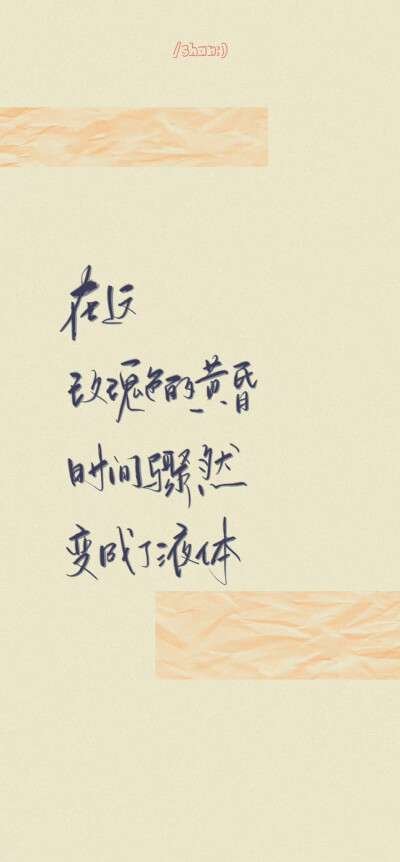 /shan:)
在这
玫瑰色的黄昏
时间骤然
变成了液体